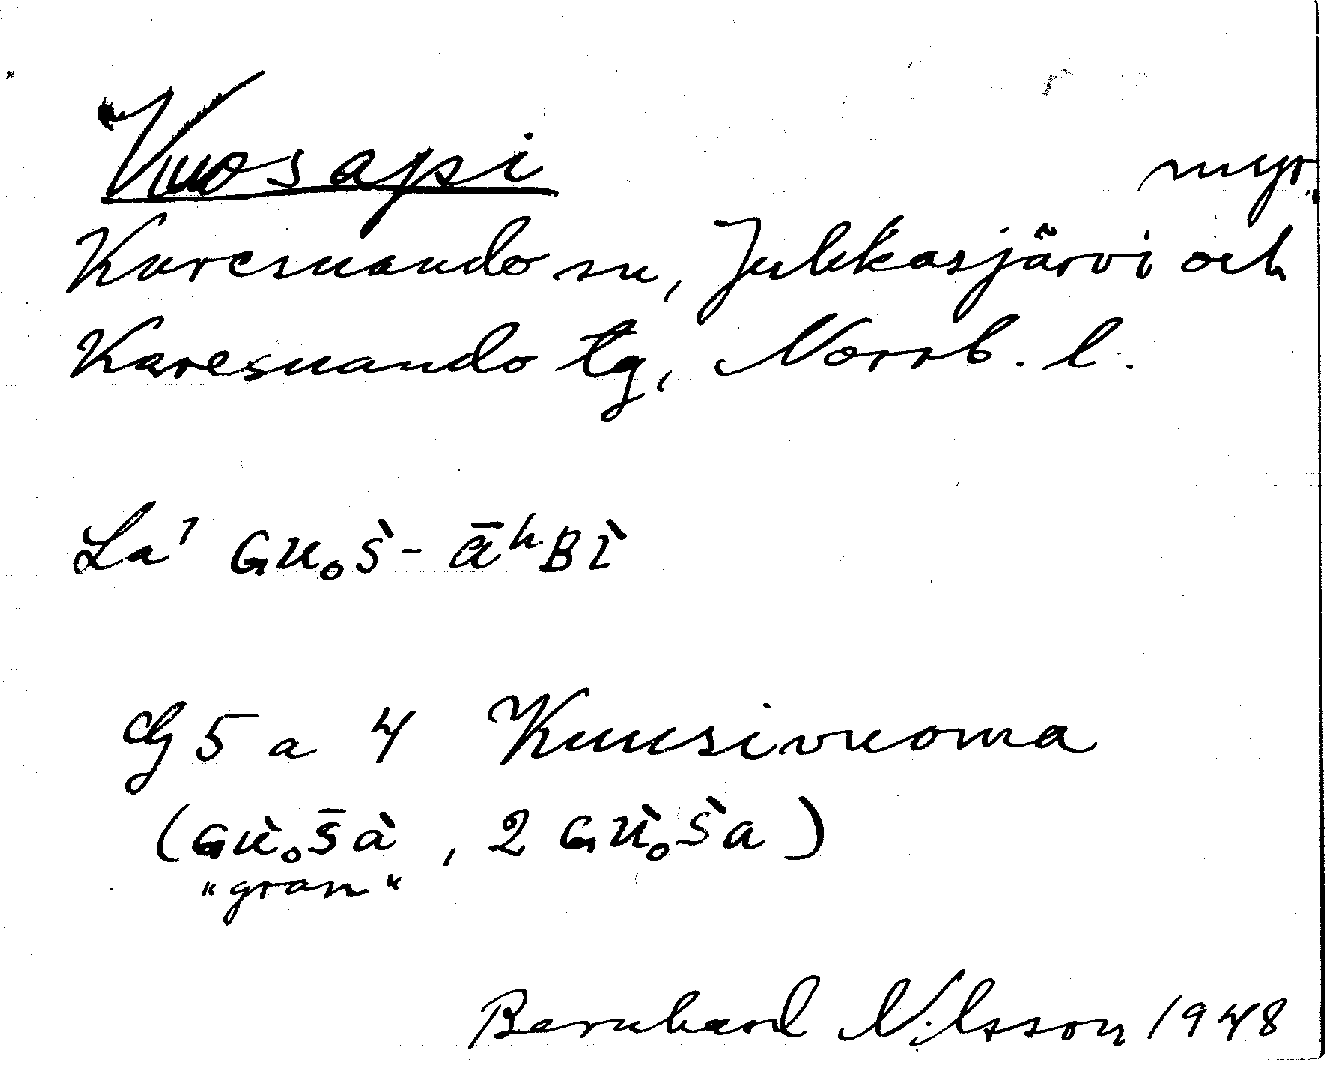 Kuosapi myr.
Karesuando sn, Jukkasjärvi och
Karesuando tg, Norrb. l.
La' Gu̥s̀- āʰBì
Cg 5 a 4 Kuusivuoma
(Gù̥s̄à, 2 Gù̥s̀a)
"gran"
Bernhard Nilsson 1948